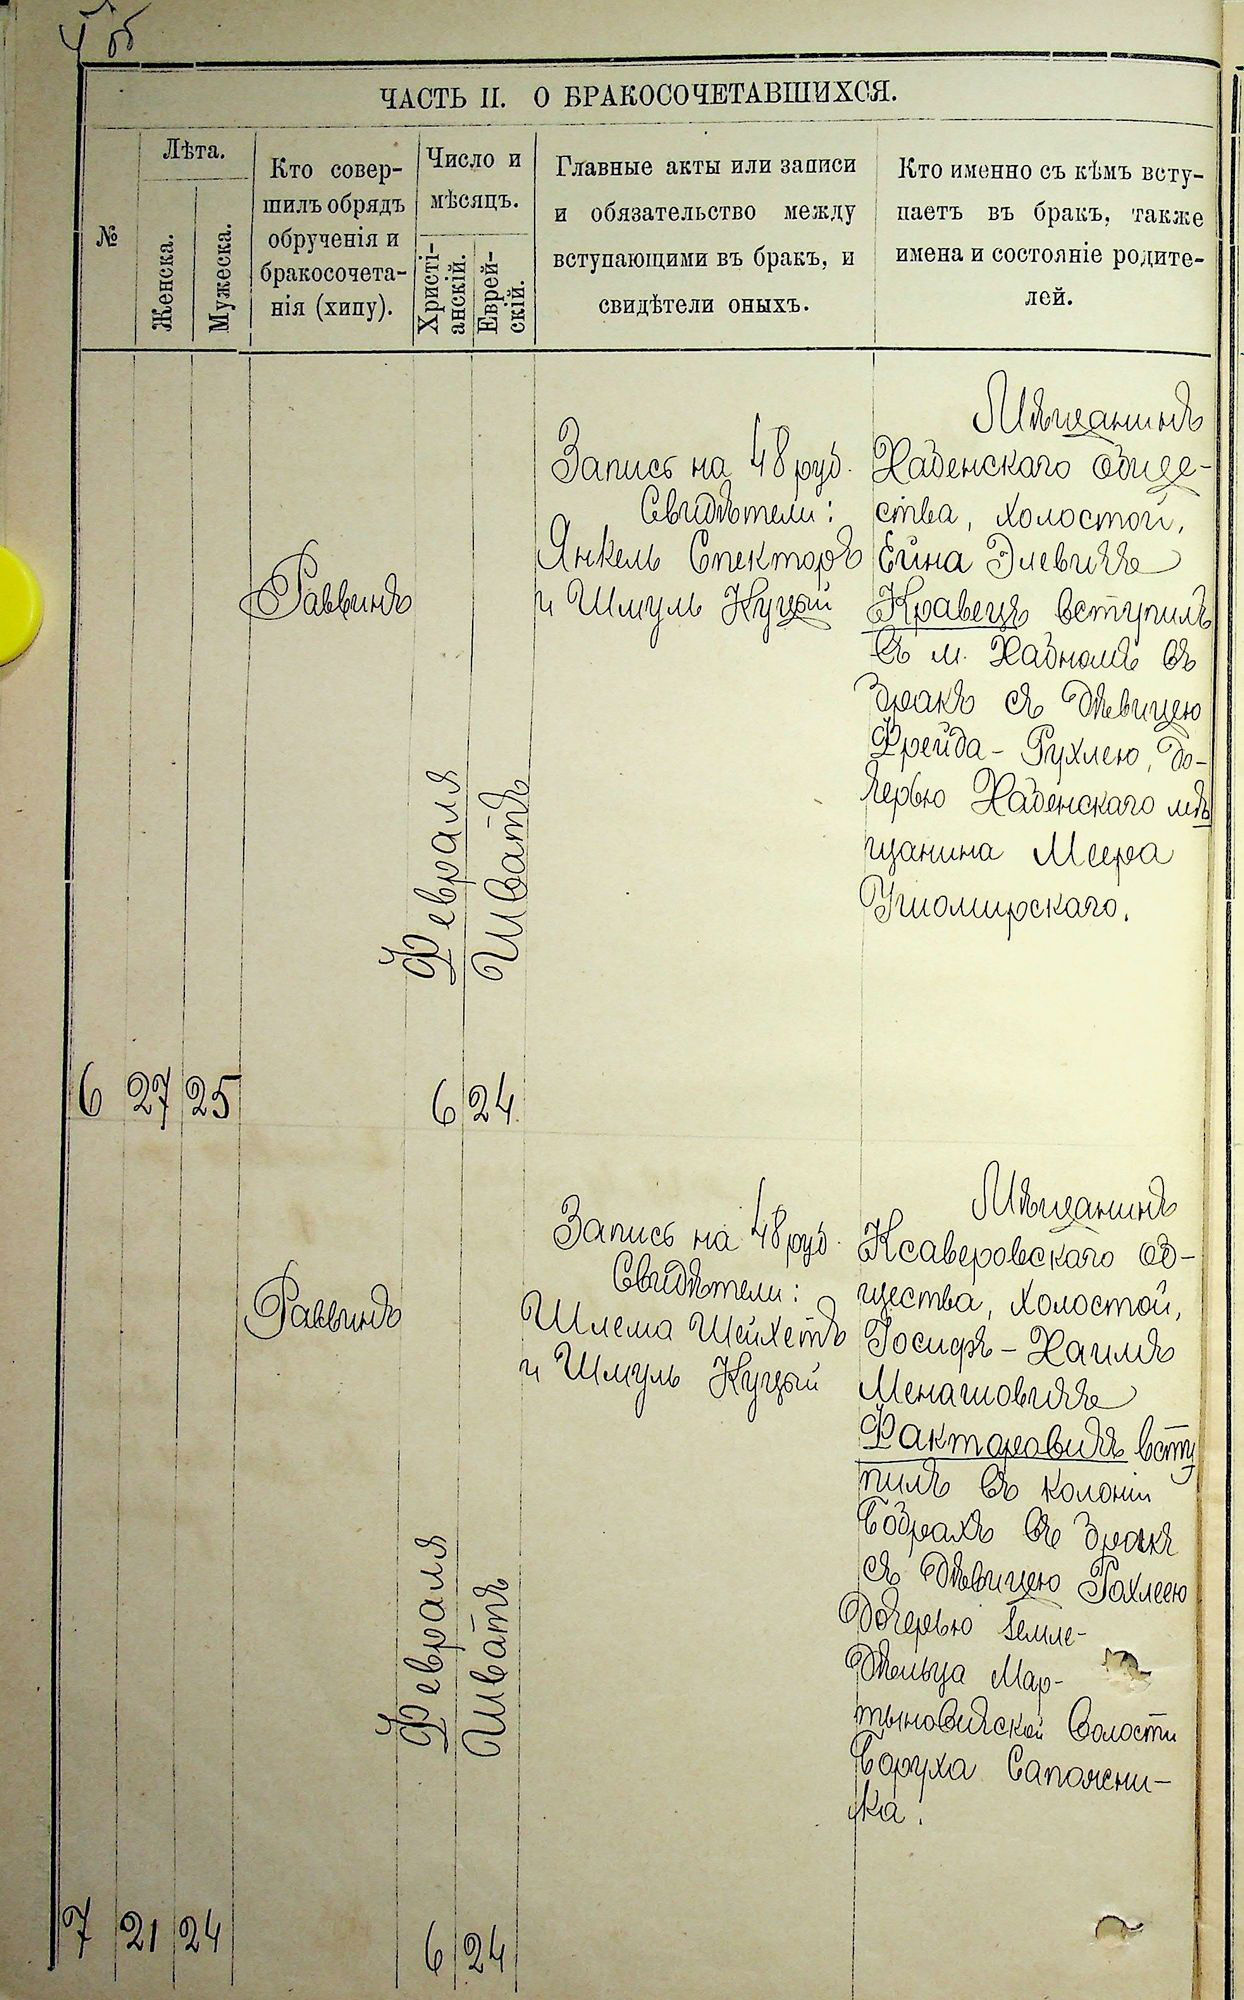 4 об
ЧАСТЬ II. О БРАКОСОЧЕТАВШИХСЯ.
№
Лѣта.
Женска.
Мужеска.
Кто совер-
шилъ обрядъ
обрученія и
бракосочета-
нія (хипу).
Число и
мѣсяцъ.
Христі-
анскій.
Еврей-
скій.
Главные акты или записи
и обязательство между
вступающими въ бракъ, и
свидѣтели оныхъ.
Кто именно съ кѣмъ всту-
паетъ въ бракъ, также
имена и состояніе родите-
лей.
6
27
25
Раввинъ
Февраля
6
Шватъ
24
Запись на 48 руб.
Свидѣтели:
Янкель Спекторъ
и Шмуль Куцый
Мѣщанинъ
Хабенскаго обще-
ства, холостой,
Ейна Элевичъ
Кравецъ вступилъ
въ м. Хабномъ въ
бракъ съ дѣвицею
Фрейда-Рухлею, до-
черью Хабенскаго мѣ
щанина Меера
Ушомирскаго.
7
21
24
Раввинъ
Февраля
6
Шватъ
24
Запись на 48 руб.
Свидѣтели:
Шлема Шейхетъ
и Шмуль Куцый
Мѣщанинъ
Ксаверовскаго об-
щества, холостой,
Іосифъ-Хаимъ
Менашовичъ
Факторовичъ всту
пилъ въ колоніи
Бобрахъ въ бракъ
съ дѣвицею Рохлеею
дочерью земле-
дѣльца Мар-
тыновичской волости
Боруха Сапожни-
ка.